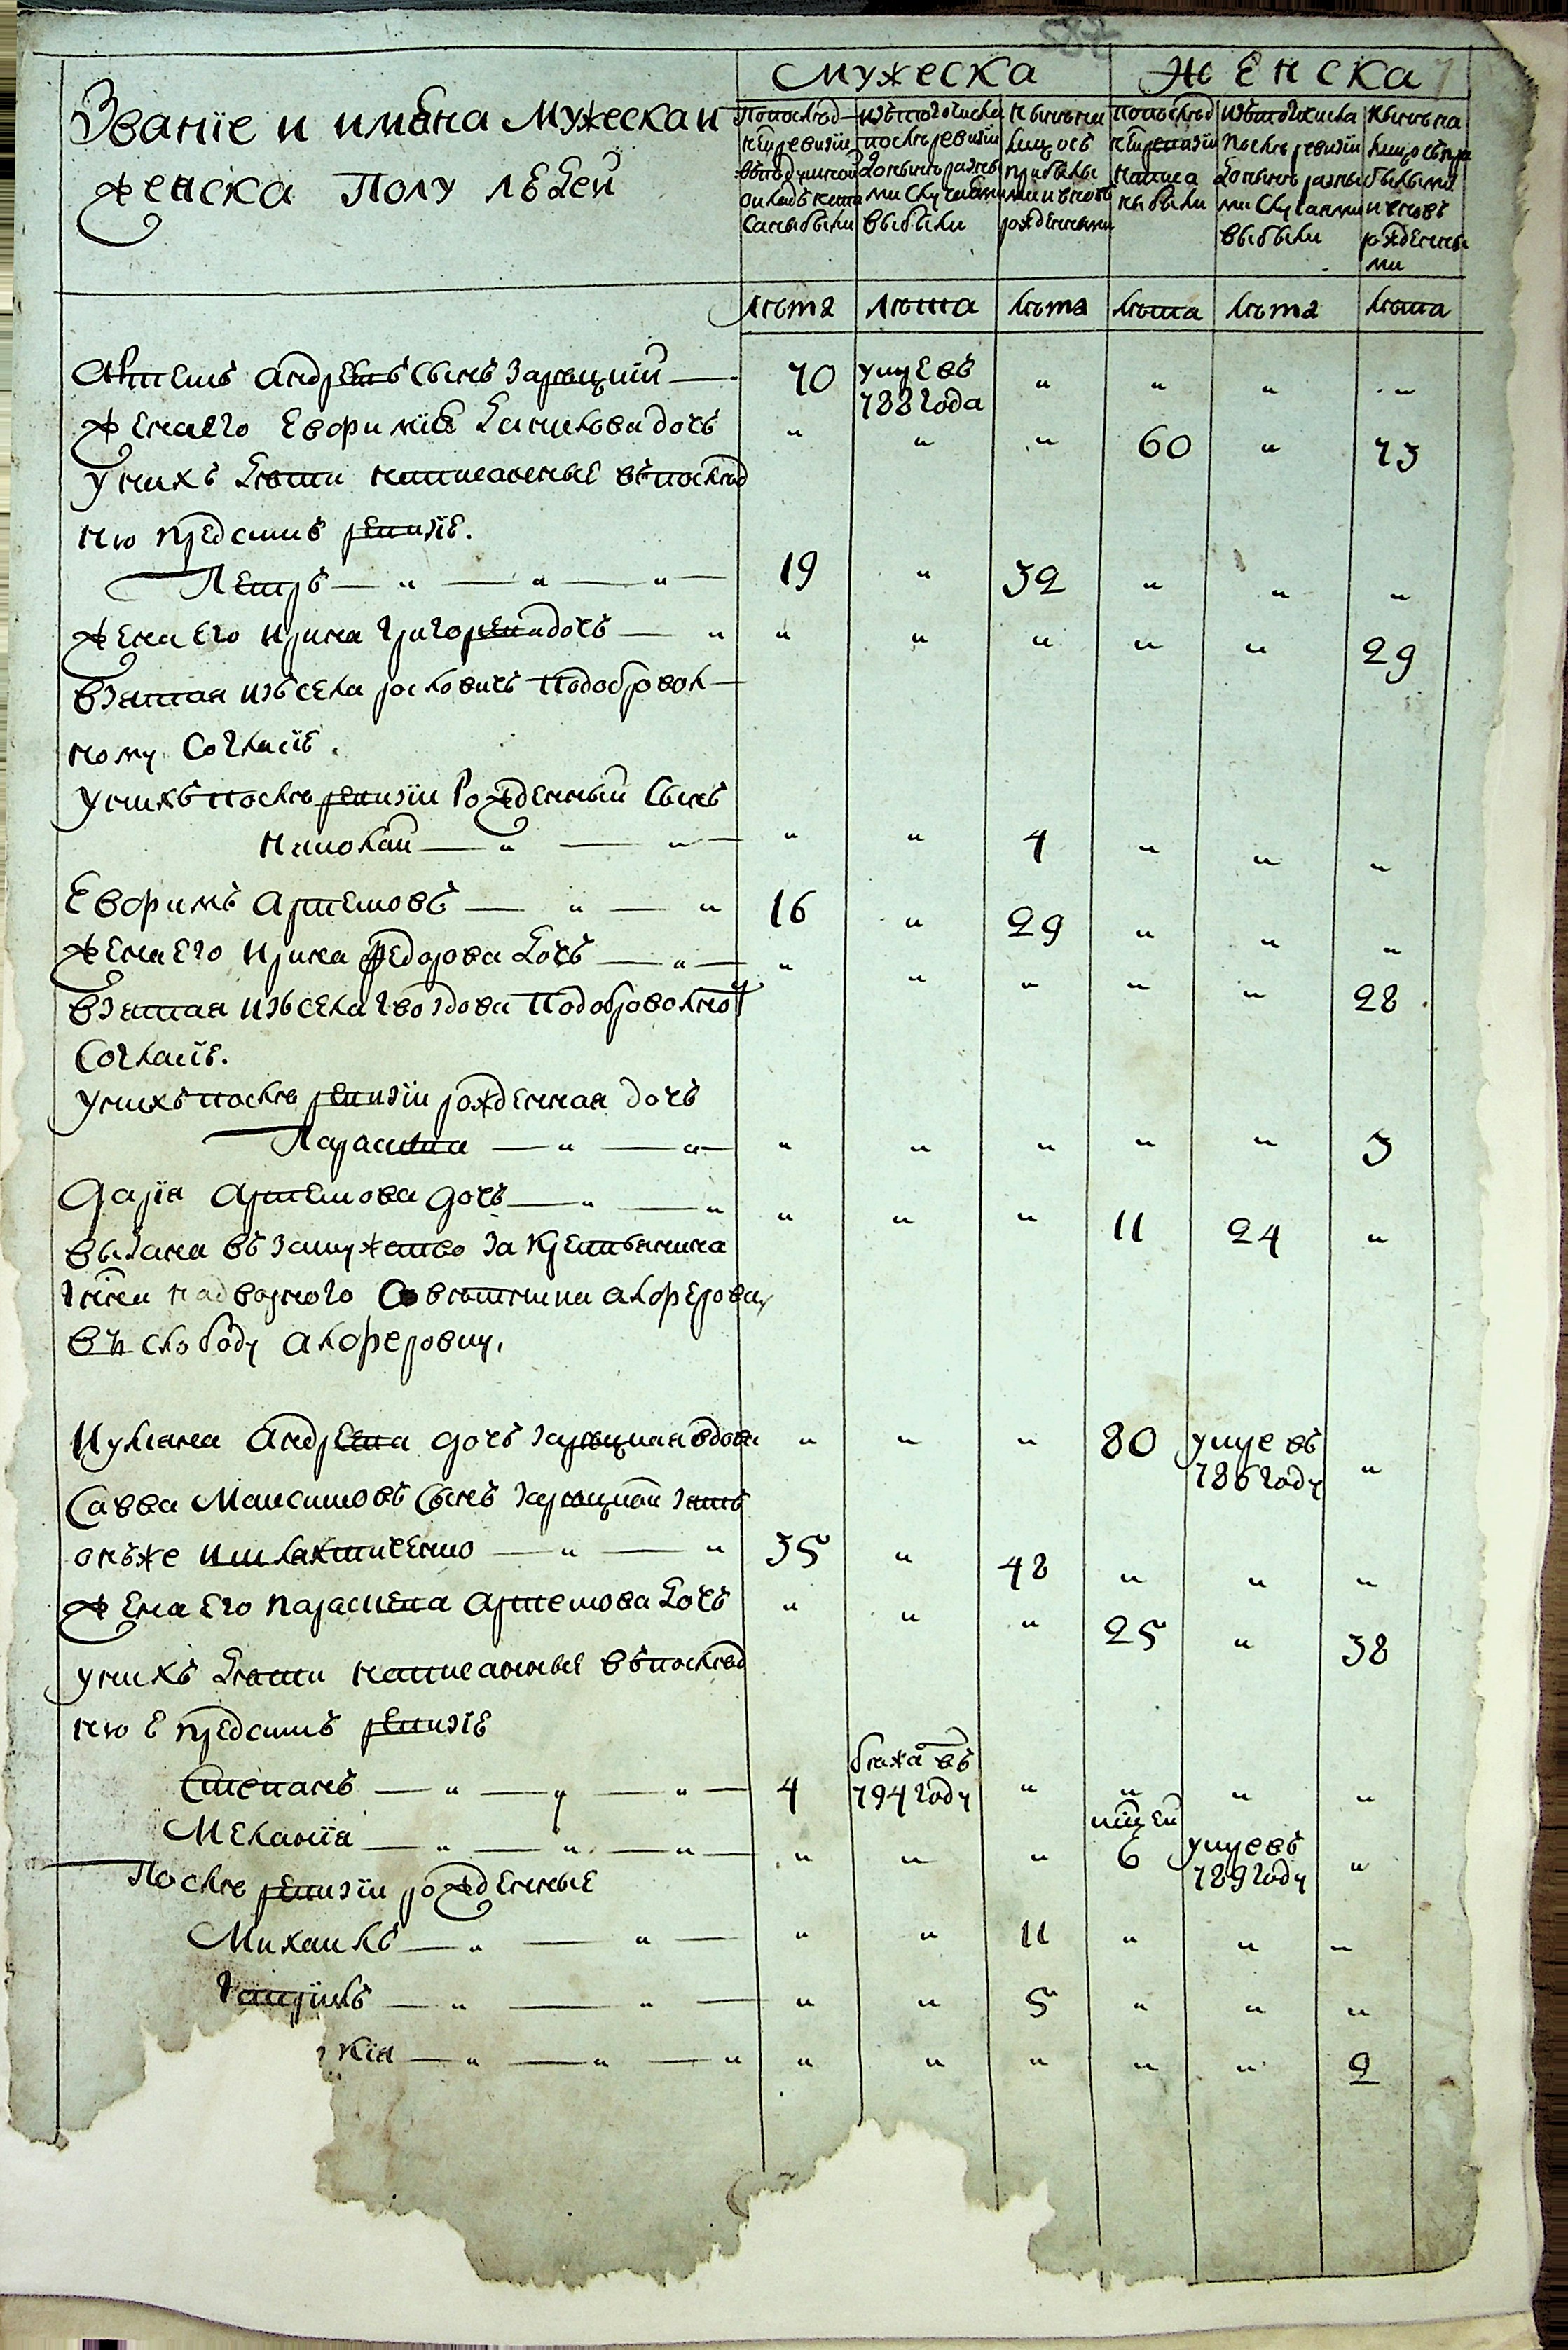 587
Мужеска Женска
Званїе и имѣна Мужеска и
женска Полу людей
По последней ревизїи в подушном окладе написаны были
Изъ того числа после ревизїи до ныне разными случаями выбыли
Ныне на лицо съ прибылыми и вновь рожденными
По последней ревизїи написаны были
Изъ того числа после ревизїи до ныне разными случаями выбыли
Ныне на лицо съ прибылыми и вновь рожденными
лѣта лѣта лѣта лѣта лѣта лѣта
Артемъ андреевъ сынъ Зарецкий — 70 умре въ 788 года „ „ „ „
жена его Евфимїа данилова дочь „ „ „ 60 „ 73
у нихъ дѣти написанные въ послед
ню предсимъ ревизїе.
Петръ — „ — „ — „ — 19 „ 32 „ „ „
жена его ирина григорева дочь — „ „ „ „ „ „ 29
взятая изъ села росковичъ по добровол—
ному согласїе.
у нихъ после ревизїи рожденный сынъ
николай — „ — „ — „ „ 4 „ „ „
Евфимъ артемовъ — „ — „ 16 „ 29 „ „ „
жена его ирина федорова дочь — „ — „ „ „ „ „ 28
взятая изъ села гвоздова по доброволному
согласїе.
у нихъ после ревизїи рожденная дочь
Параскева — „ — „ — „ „ „ „ „ 3
Дарїя артемова дочь — „ — „ „ „ „ 11 24 „
выдана въ замужство за крестьянина
гдна надворного советника алферова,
въ слободу алферовку,
Иулиана андреева дочь зарецкая вдова „ „ „ 80 умре въ 786 году „
Савва Максимовъ сынъ зарецкой зять
онъже — „ — „ 35 „ 48 „ „ „
жена его параскева артемова дочь „ „ „ 25 „ 38
у нихъ дѣти написанные въ послед
нюе предсимъ ревизїе
Степанъ — „ — „ — „ — 4 бежа въ 794 году „ „ „ „
Меланїя — „ — „ — „ — „ „ „ 6 умре въ 789 году „
После ревизїи рожденные
Михаилъ — „ — „ — „ „ 11 „ „ „
Гаврїилъ — „ — „ — „ „ 5 „ „ „
кїя — „ — „ — „ „ „ „ „ „ 9